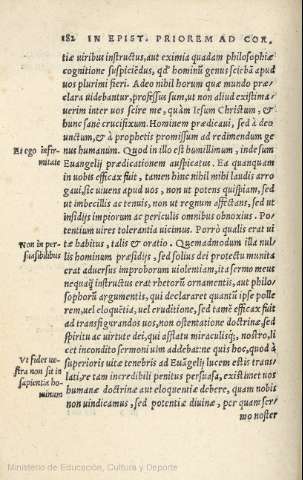 182 IN EPIST. PRIOREM AD COR.
tiæ uiribus instructus, aut eximia quadam philosophiæ
cognitione suspiciẽdus, qd' hominũ genus sciebã apud
uos plurimi fieri. Adeo nihil horum quæ mundo præ=
clara uidebantur, professus sum, ut non aliud existima=
uerim inter uos scire me, quàm Iesum Christum, &
hunc sanè crucifixum. Hominem prædicaui, sed à deo
unctum, & à prophetis promissum ad redimendum ge=
nus humanum. Quod in illo est humillimum, inde sum
Et ego infir=
mitate
Euangelij prædicationem auspicatus. Ea quanquam
in uobis efficax fuit, tamen hinc nihil mihi laudis arro
gaui, sic uiuens apud uos, non ut potens quispiam, sed
ut imbecillis ac tenuis, non ut regnum affectans, sed ut
insidijs impiorum ac periculis omnibus obnoxius. Po=
tentium uires tolerantia uicimus. Porrò qualis erat ui
Non in per=
suasibilibus
tæ habitus, talis & oratio. Quemadmodum illa nul=
lis hominum præsidijs, sed solius dei protectu munita
erat aduersus improborum uiolentiam, ita sermo meus
nequaq̃ instructus erat rhetorũ ornamentis, aut philo=
sophorũ argumentis, qui declararet quantũ ipse polle
rem, uel eloquẽtia, uel eruditione, sed tamẽ efficax fuit
ad transfigurandos uos, non ostentatione doctrinæ, sed
spiritu ac uirtute dei, qui afflatu miraculisq;, nostro, li
cet incondito sermoni uim addebat: ne quis hoc, quod à
Vt fides ue=
stra non sit in
sapientia ho=
minum
superioris uitæ tenebris ad Euãgelij lucem estis trans
lati, re tam incredibili penitus persuasa, existimet uos
humanæ doctrinæ aut eloquentiæ debere, quam nobis
non uindicamus, sed potentiæ diuinæ, per quam ser=
mo noster
Ministerio de Educación, Cultura y Deporte